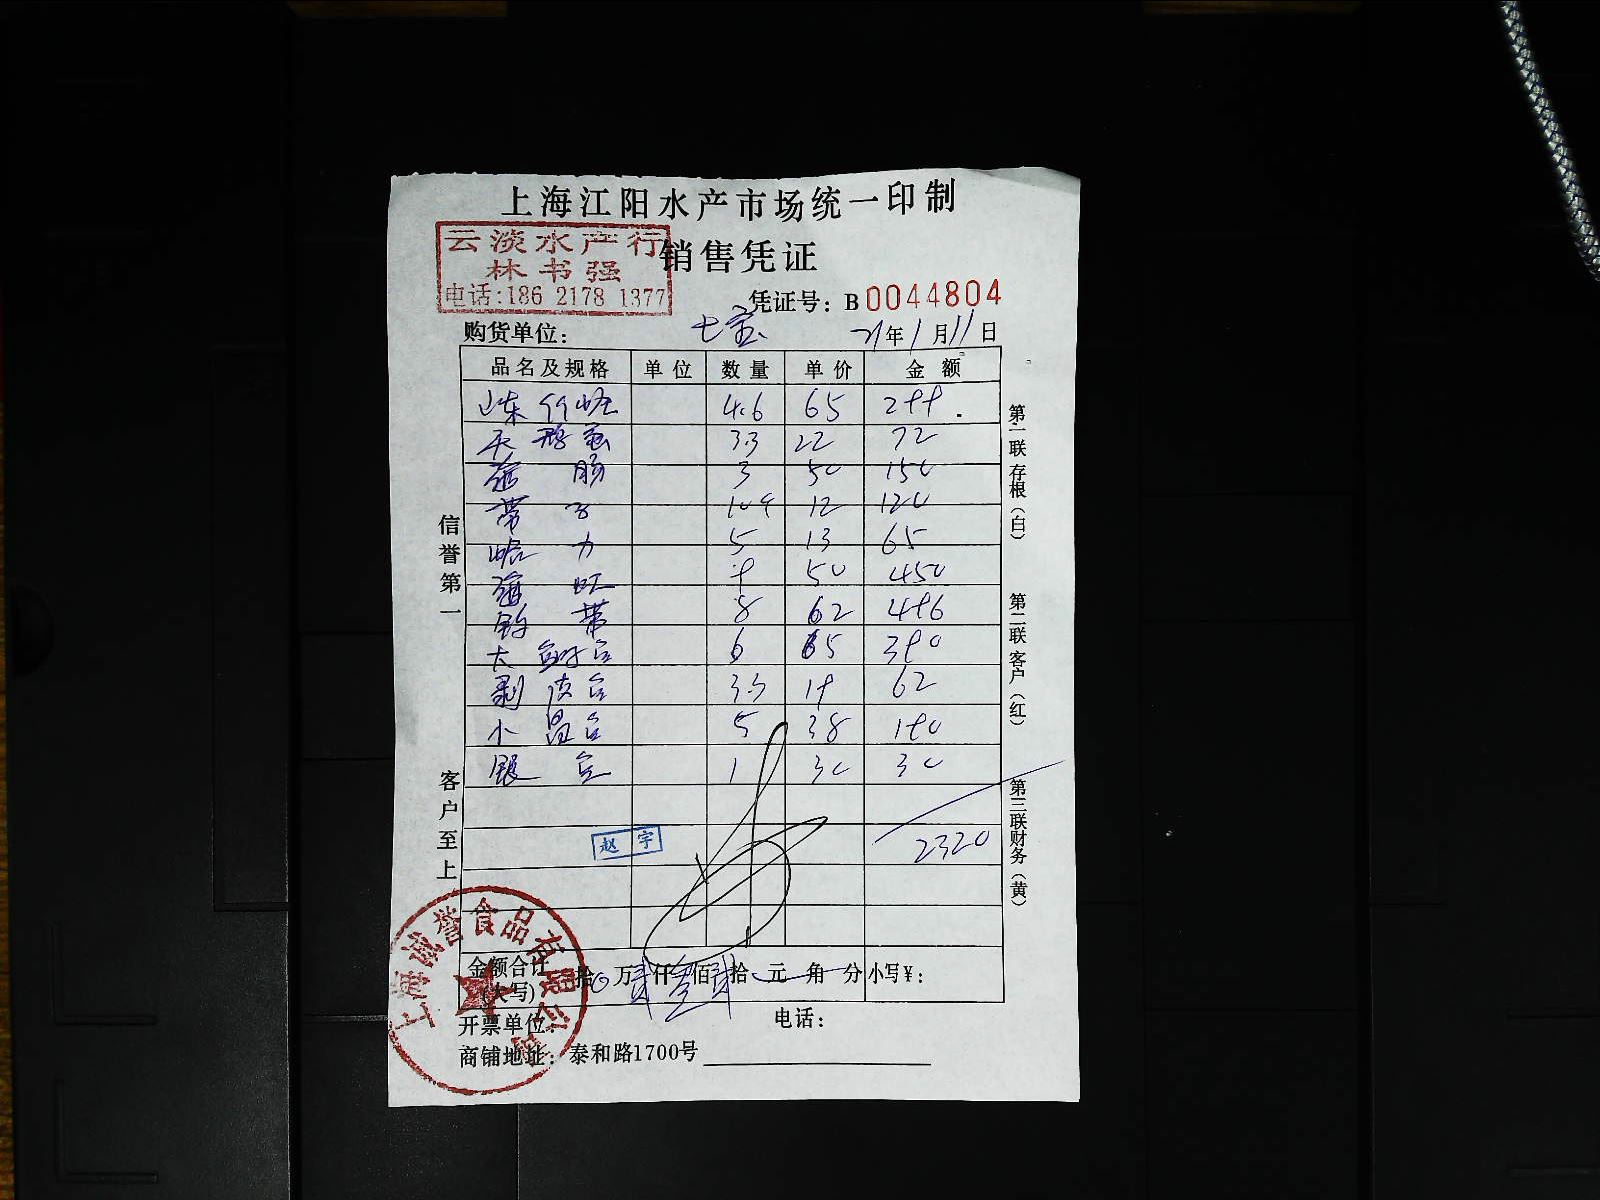 上海江阳水产市场统一印制
云淡水产行
林书强
电话:186 2178 1377
销售凭证
凭证号: B0044804
购货单位: 七宝 21年1月11日
品名及规格 单位 数量 单价 金额
4.6 65 299.
天 3.3 22 72
肠 3 50 150
带子 10.9 12 120
5 13 65
9 50 450
带 8 62 496
6 65 390
剥皮鱼 3.3 19 62
小昌鱼 5 38 190
银鱼 1 30 30
2320
赵宇
信誉第一
客户至上
第一联存根(白)
第二联客户(红)
第三联财务(黄)
金额合计(大写) 拾0万贰仟叁佰贰拾元角分 小写¥:
开票单位: 电话:
商铺地址: 泰和路1700号
上海诚誉食品有限公司